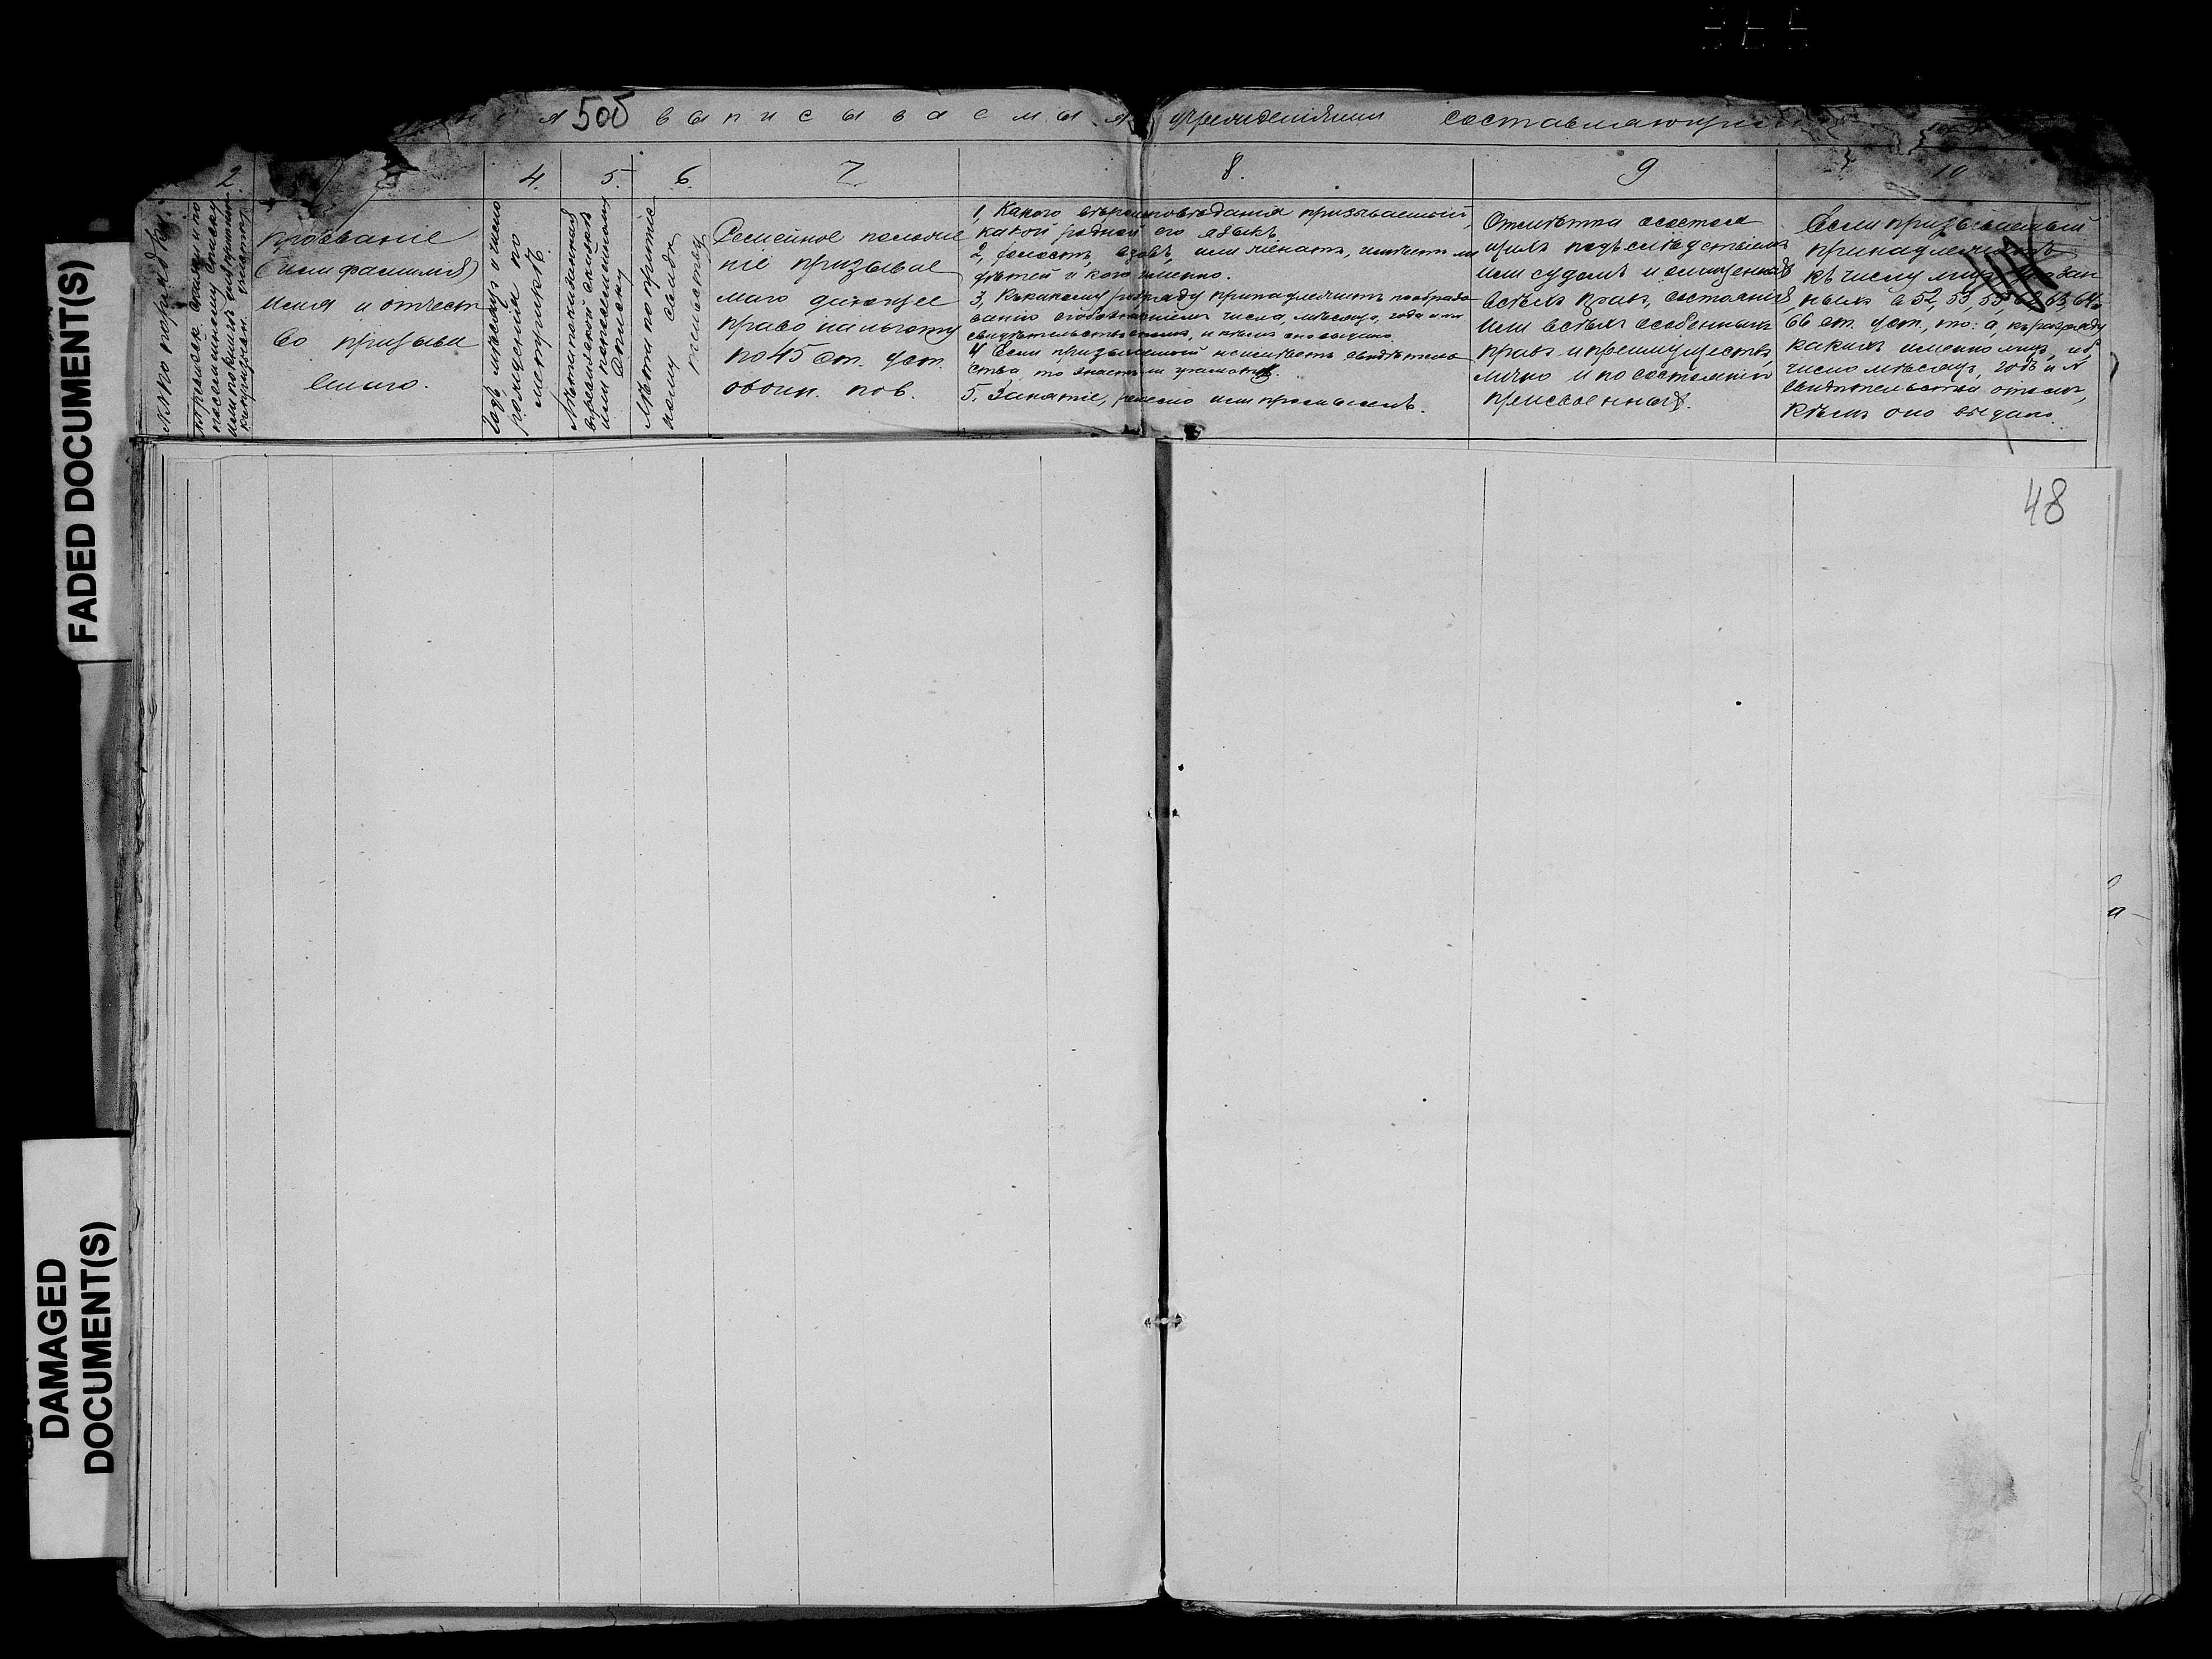 505
вписываемыя учрежденіями составляющими
2. 4. 5. 6. 7 8. 9 10
№№ по порядку.
Прозваніе
(или фамилія)
имя и отчест
во призыва
емаго.
Годъ мѣсяцъ и число
рожденія по
метрикѣ.
Лѣта показанныя
или
Лѣта по
Семейное положе
ніе призывае
маго дающее
право на льготу
по 45 ст. уст.
о воин. пов.
1, Какого вѣроисповѣданія призываемый,
какой родной его языкъ.
2, холостъ, вдовъ, или женатъ, имѣетъ ли
дѣтей и кого именно.
3, Къ какому разряду принадлежитъ по образо
ванію числа, мѣсяца, года и №
свидѣтельства и кѣмъ оно выдано.
4 Если призываемый не имѣетъ свидѣтель
ства, то знаетъ ли грамоту.
5. Занятіе, ремесло или промыселъ.
Отмѣтка о состоя
щихъ подъ слѣдствіемъ
или судомъ и о лишенныхъ
всѣхъ правъ состоянія,
или всѣхъ особенныхъ
правъ и преимуществъ,
лично и по состоянію
присвоенныхъ.
Если призываемый
принадлежитъ
къ числу лицъ указан
ныхъ въ 52, 53, 55, 62, 63, 64,
66 ст. уст., то: а, къ разряду
какихъ именно лицъ, и б,
число мѣсяцъ, годъ и №
свидѣтельства о томъ,
кѣмъ оно выдано.
48
FADED DOCUMENT(S)
DAMAGED
DOCUMENT(S)